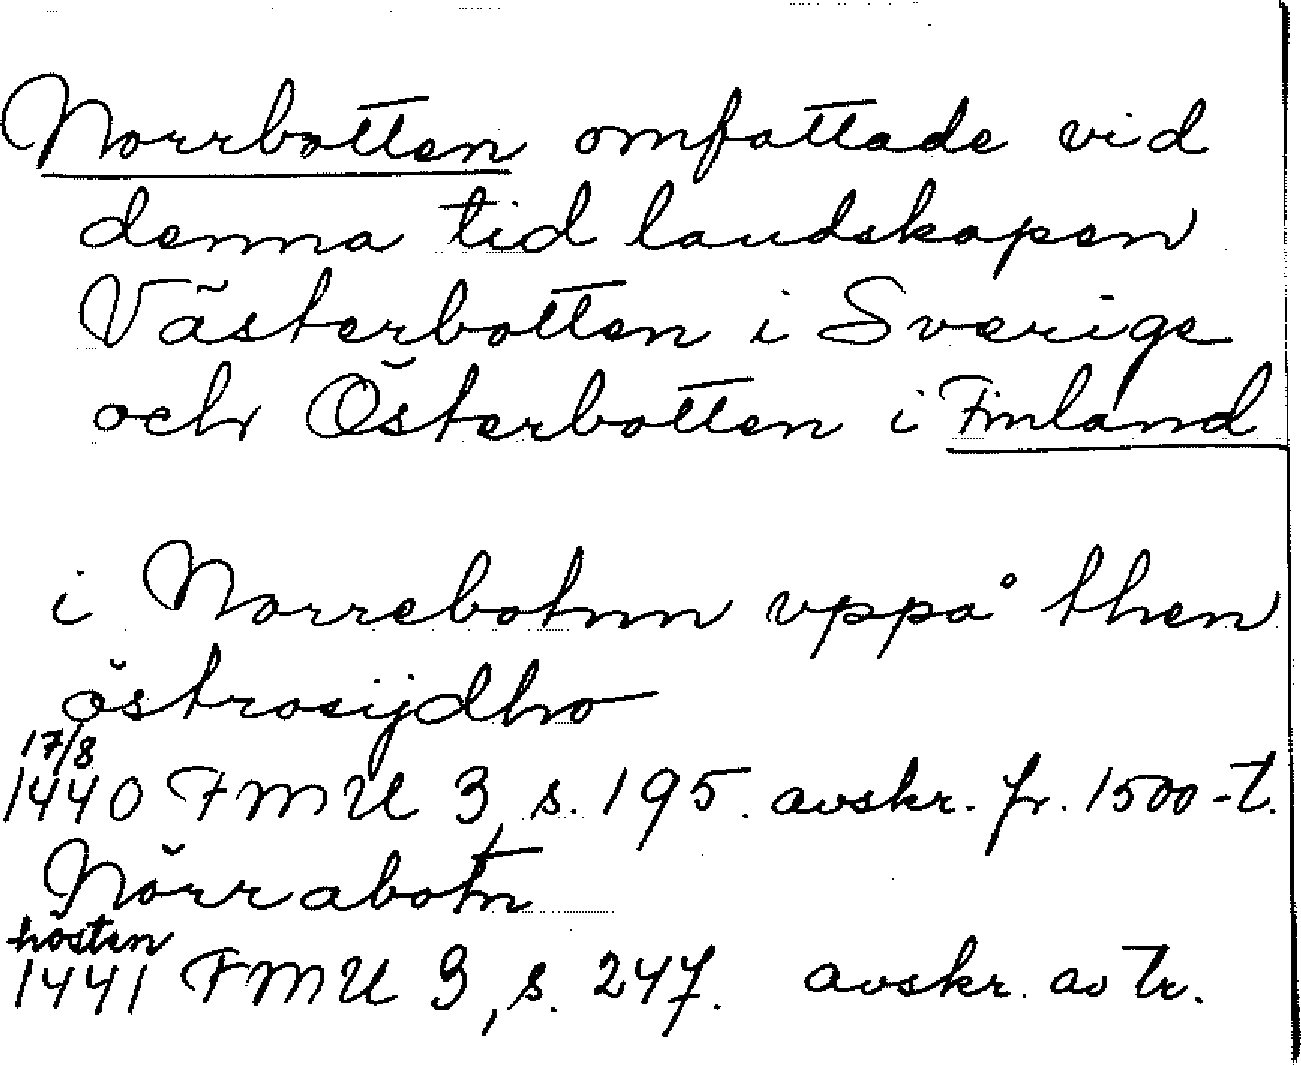 Norrbotten omfattade vid
denna tid landskapen
Västerbotten i Sverige
och Österbotten i Finland
i Norrebotnn vppå then
östrosijdho
17/8
1440 FMU 3, s. 195. avskr. fr. 1500-t.
Nörrabotn
hösten
1441 FMU 3, s. 247. avskr. av Tr.